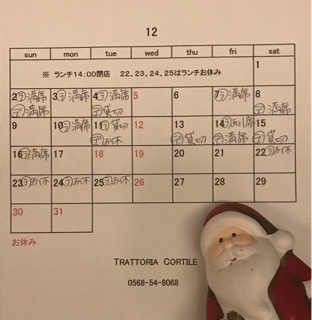 12
sun mon tue wed thu fri sat
※ ランチ14:00閉店 22、23、24、25はランチお休み
1
2 ラ満席 3 ラ満席 4 ラ満席 5 6 7 ラ満席 8
デ貸切 デ満席
9 10 ラ満席 11 ラ貸切 12 13 14 15
デお休 デ貸切 デ満席 デ貸切
16 ラ満席 17 18 19 20 21 22 ラお休
23 ラお休 24 ラお休 25 ラお休 26 27 28 29
30 31
お休み
TRATTORIA CORTILE
0568-54-8068